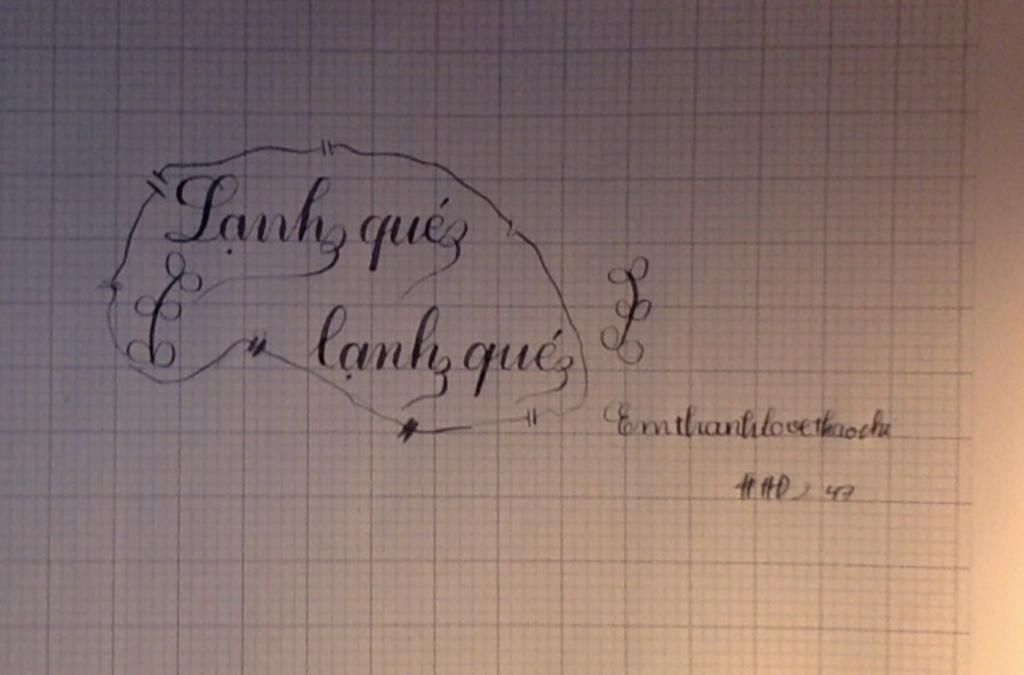 Lạnh qué
lạnh qué
Emthanhlovethaochi